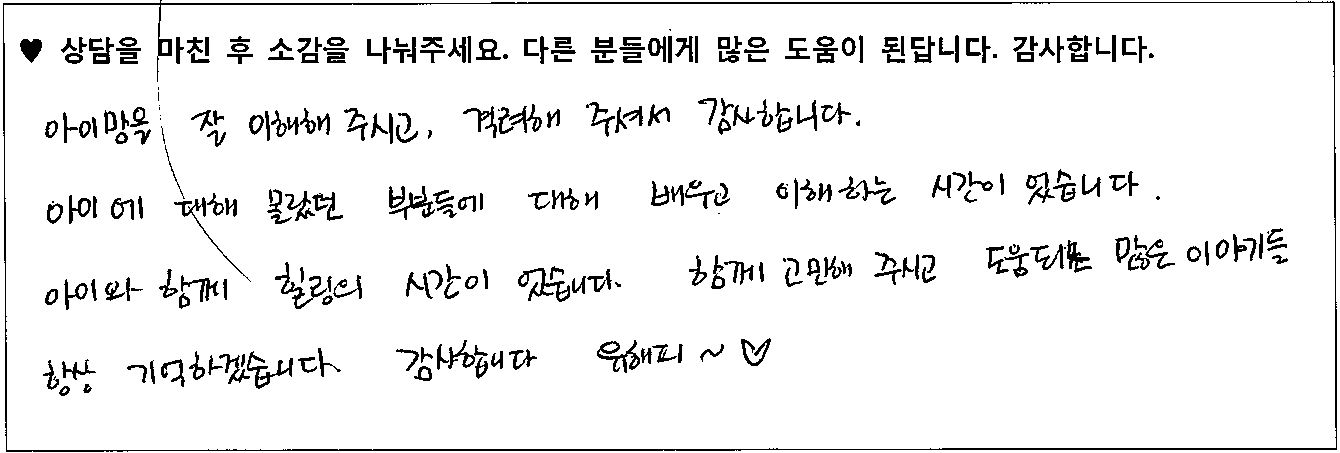 ♥ 상담을 마친 후 소감을 나눠주세요. 다른 분들에게 많은 도움이 된답니다. 감사합니다.
아이맘을 잘 이해해 주시고, 격려해 주셔서 감사합니다.
아이에 대해 몰랐던 부분들에 대해 배우고 이해하는 시간이 었습니다.
아이와 함께 힐링의 시간이 었습니다. 함께 고민해 주시고 도움되는 많은 이야기들
항상 기억하겠습니다. 감사합니다 유해피~♡